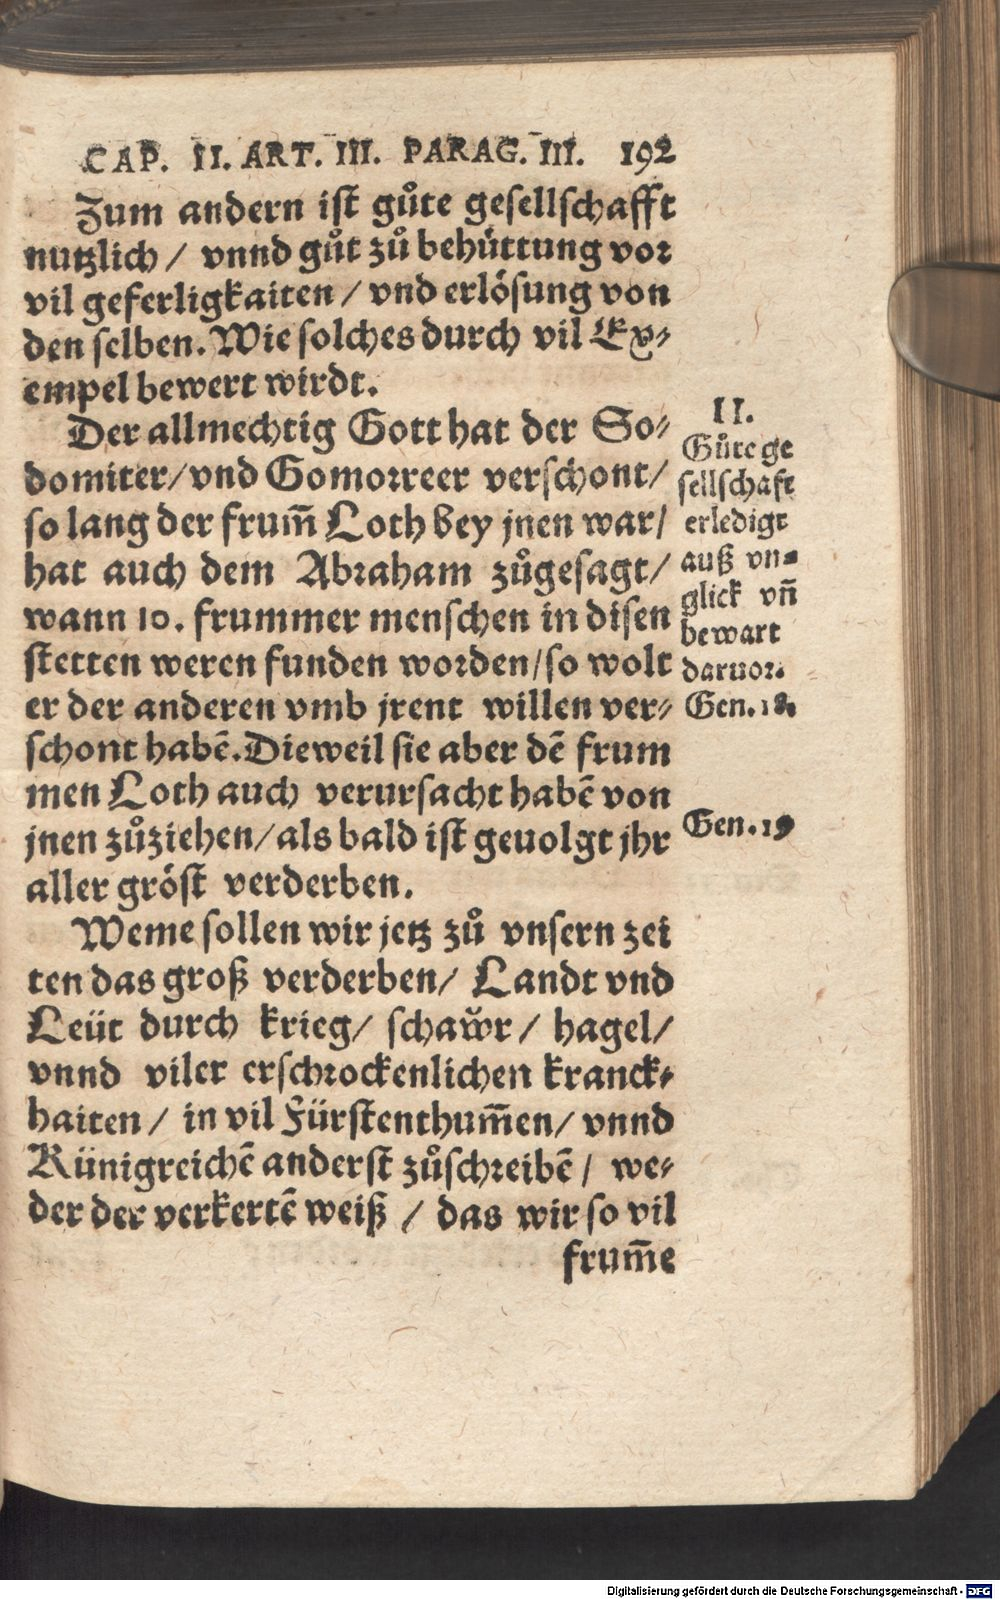 CAP. II. ART. III. PARAG. III. 192
Zum andern ist gůte gesellschafft
nutzlich / vnnd gůt zů behüttung vor
vil geferligkaiten / vnd erlösung von
den selben. Wie solches durch vil Ex⸗
empel bewert wirdt.
Der allmechtig Gott hat der So⸗
domiter/ vnd Gomorreer verschont/
so lang der frum̃ Loth bey jnen war/
hat auch dem Abraham zůgesagt/
wann 10. frummer menschen in disen
stetten weren funden worden/ so wolt
er der anderen vmb jrent willen ver⸗
schont habẽ. Dieweil sie aber dẽ frum
men Loth auch verursacht habẽ von
jnen zůziehen/ als bald ist geuolgt jhr
aller gröst verderben.
Weme sollen wir jetz zů vnsern zei
ten das groß verderben/ Landt vnd
Leüt durch krieg/ schaẘr / hagel/
vnnd viler erschrockenlichen kranck⸗
haiten / in vil Fürstenthum̃en/ vnnd
Künigreichẽ anderst zůschreibẽ / we⸗
der der verkertẽ weiß / das wir so vil
frum̃e
II.
Gůte ge
sellschaft
erledigt
auß vn⸗
glick vñ
bewart
daruor.
Gen. 18.
Gen. 19
Digitalisierung gefördert durch die Deutsche Forschungsgemeinschaft - DFG